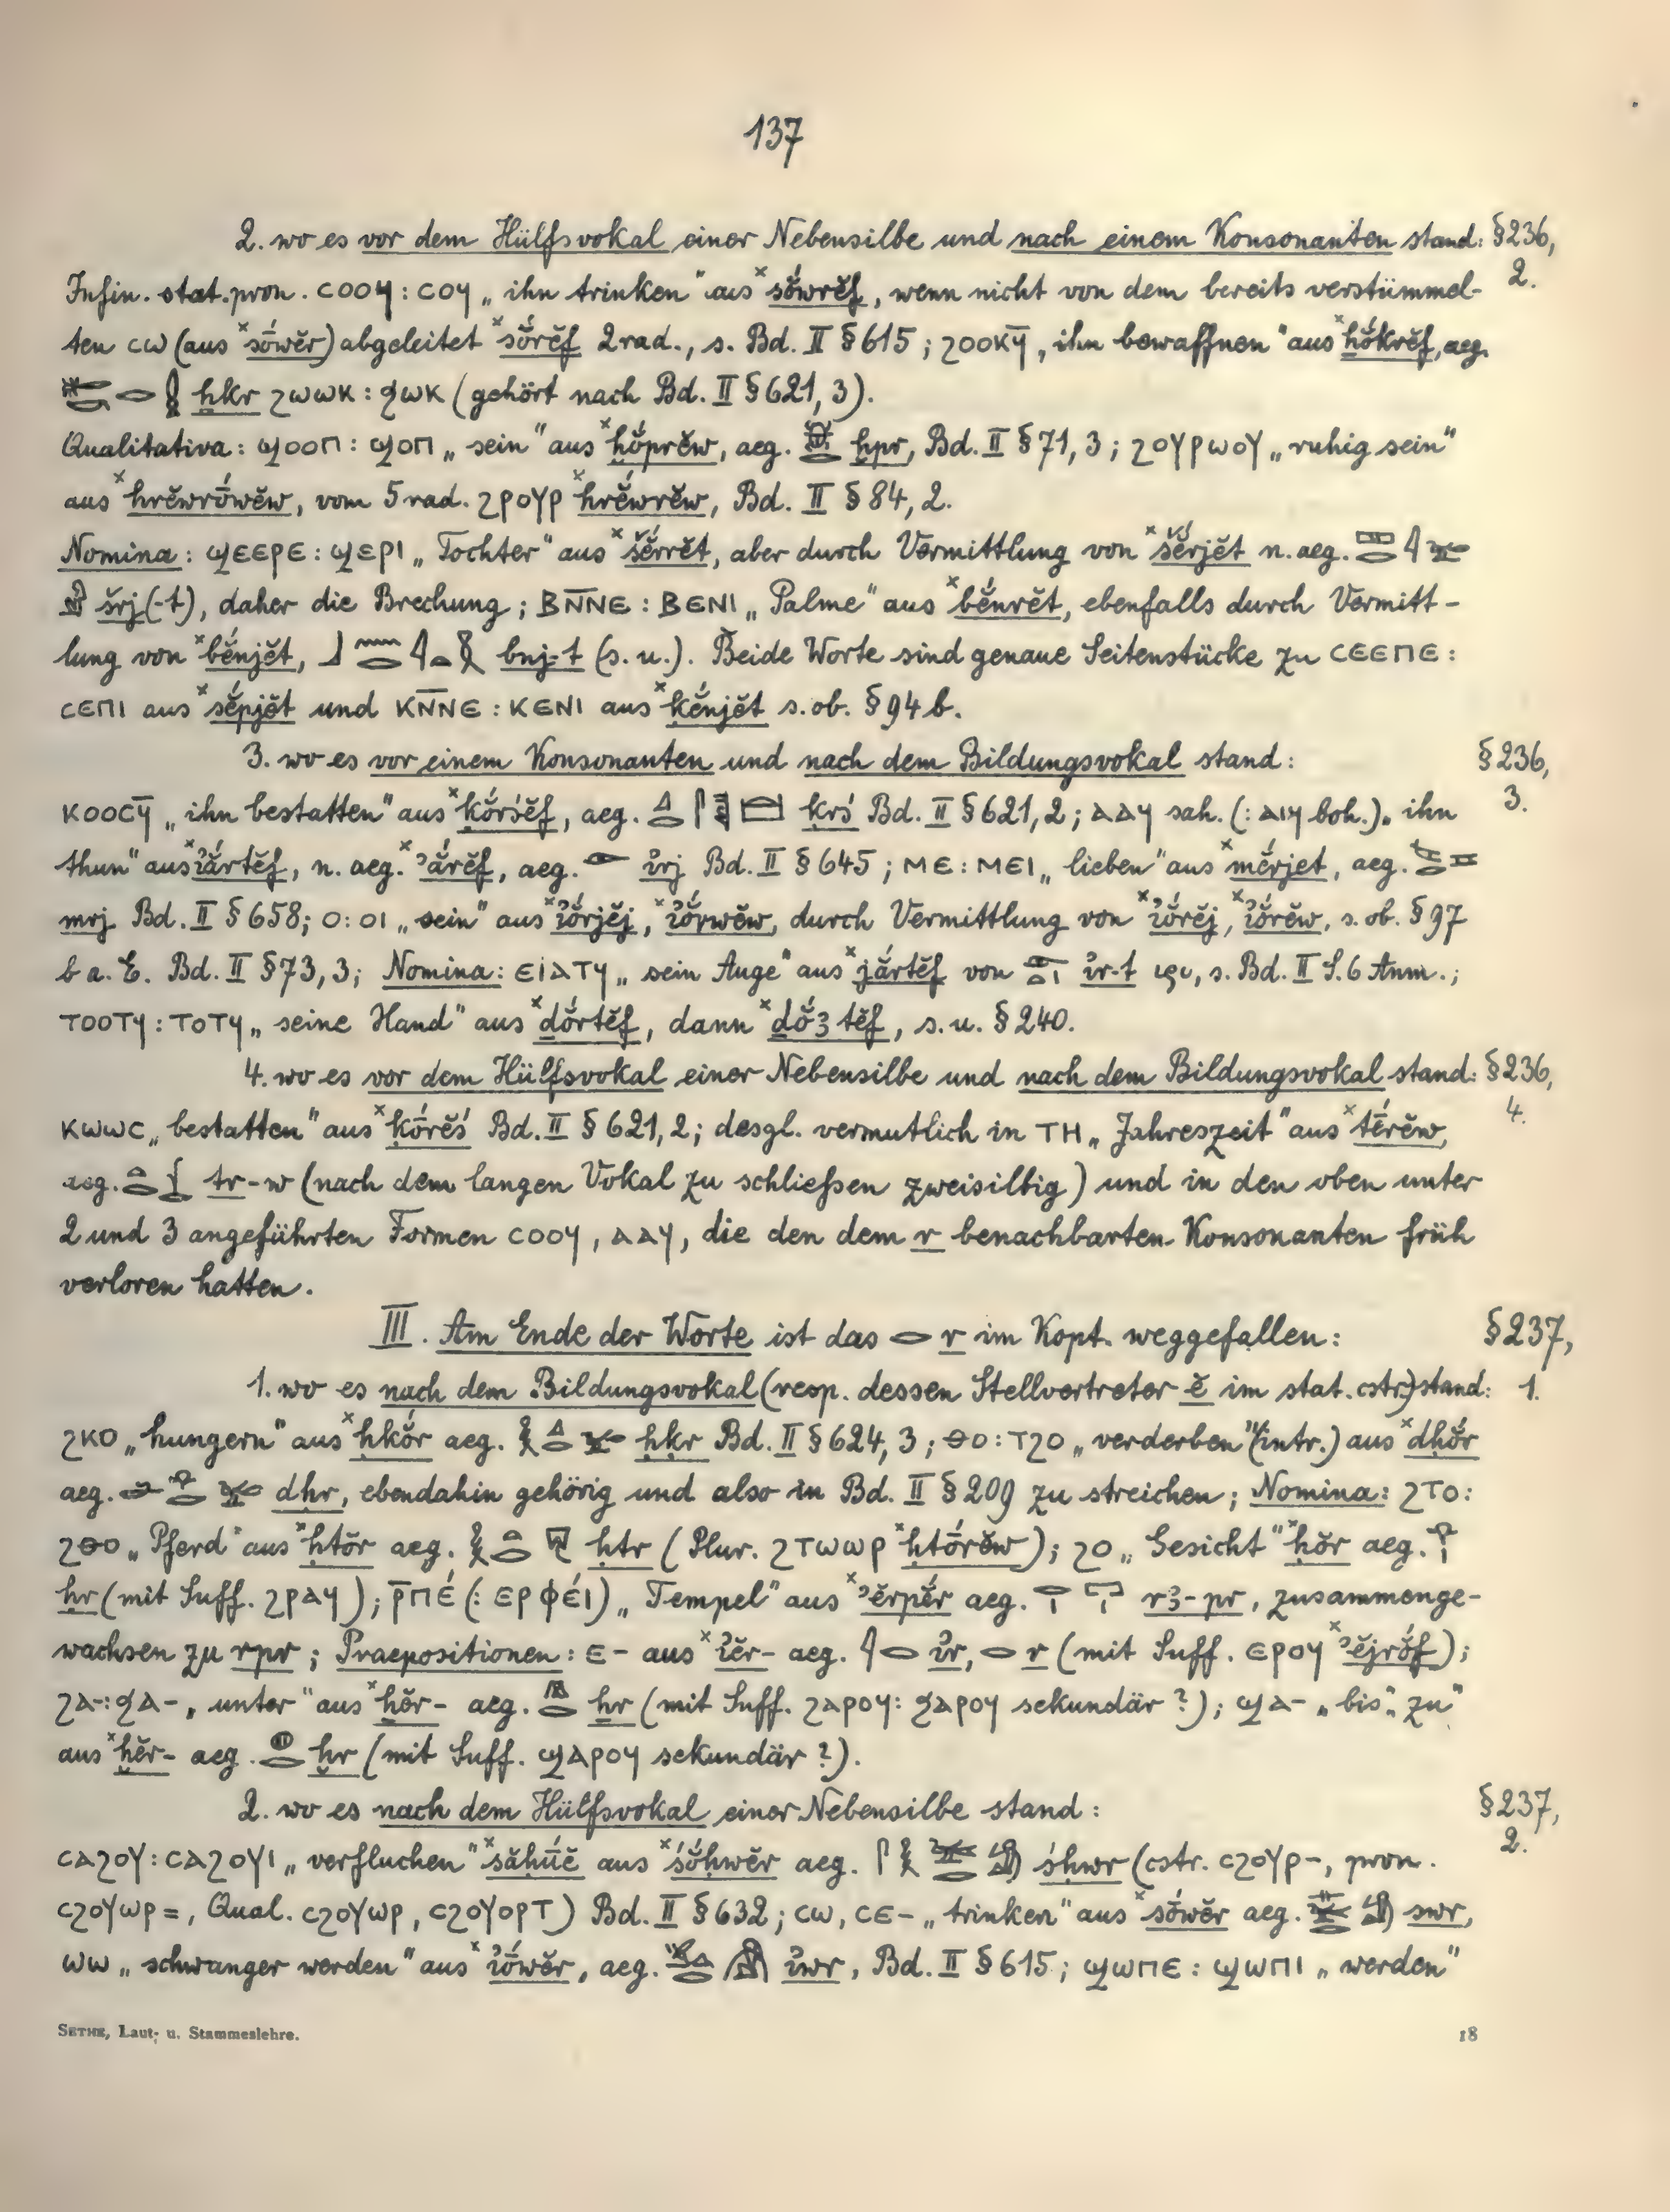 137
2. wo es vor dem Hülfsvokal einer Nebensilbe und nach einem Konsonanten stand: §236, 2.
Infin. stat. pron. ⲥⲟⲟϥ : ⲥⲟϥ „ ihn trinken" aus ×sŏ́wrĕf, wenn nicht von dem bereits verstümmel-
ten ⲥⲱ (aus ×sṓwĕr) abgeleitet ×sŏ́rĕf 2rad., s. Bd. II §615 ; ϩⲟⲟⲕϥ̄ „ ihn bewaffnen" aus ×ḫŏ́krĕf, aeg.
ẖkr ϩⲱⲱⲕ : ϧⲱⲕ (gehört nach Bd. II §621, 3).
Qualitativa : ϣⲟⲟⲡ : ϣⲟⲡ „ sein" aus ×ḫŏ́prĕw, aeg. ḫpr, Bd. II §71, 3 ; ϩⲟⲩⲣⲱⲟⲩ „ ruhig sein"
aus ×hrĕwrṓwĕw, vom 5 rad. ϩⲣⲟⲩⲣ ×hrĕ́wrĕw, Bd. II §84, 2.
Nomina : ϣⲉⲉⲣⲉ : ϣⲉⲣⲓ „ Tochter" aus ×šĕ́rrĕt, aber durch Vermittlung von ×šĕ́rjĕt n. aeg.
šrj(-t), daher die Brechung ; ⲃⲛ̄ⲛⲉ : ⲃⲉⲛⲓ „ Palme" aus ×bĕ́nrĕt, ebenfalls durch Vermitt-
lung von ×bĕ́njĕt, bnj-t (s. u.). Beide Worte sind genaue Seitenstücke zu ⲥⲉⲉⲡⲉ :
ⲥⲉⲡⲓ aus ×sĕ́pjĕt und ⲕⲛ̄ⲛⲉ : ⲕⲉⲛⲓ aus ×ḳĕ́njĕt s. ob. §94 b.
3. wo es vor einem Konsonanten und nach dem Bildungsvokal stand : §236, 3.
ⲕⲟⲟⲥϥ̄ „ ihn bestatten" aus ×ḳŏ́rśĕf, aeg. ḳrś Bd. II §621, 2 ; ⲁⲁϥ sah. (: ⲁⲓϥ boh.) „ ihn
thun" aus ×ỉắrtĕf, n. aeg. ×ʾắrĕf, aeg. ỉrj Bd. II §645 ; ⲙⲉ : ⲙⲉⲓ „ lieben" aus ×mĕ́rjet, aeg.
mrj Bd. II §658 ; ⲟ : ⲟⲓ „ sein" aus ×ỉŏ́rjĕj, ×ỉŏ́rwĕw, durch Vermittlung von ×ỉŏ́rĕj, ×ỉŏ́rĕw, s. ob. §97
b a. E. Bd. II §73, 3 ; Nomina : ⲉⲓⲁⲧϥ „ sein Auge" aus ×jắrtĕf von ỉr-t, s. Bd. II S. 6 Anm. ;
ⲧⲟⲟⲧϥ : ⲧⲟⲧϥ „ seine Hand" aus ×dŏ́rtĕf, dann ×dŏ́ꜣtĕf, s. u. §240.
4. wo es vor dem Hülfsvokal einer Nebensilbe und nach dem Bildungsvokal stand : §236, 4.
ⲕⲱⲱⲥ „ bestatten" aus ×ḳṓrĕś Bd. II §621, 2 ; desgl. vermutlich in ⲧⲏ „ Jahreszeit" aus ×tḗrĕw,
aeg. tr-w (nach dem langen Vokal zu schließen zweisilbig) und in den oben unter
2 und 3 angeführten Formen ⲥⲟⲟϥ, ⲁⲁϥ, die den dem r benachbarten Konsonanten früh
verloren hatten.
III. Am Ende der Worte ist das 𓂋 r im Kopt. weggefallen : §237,
1. wo es nach dem Bildungsvokal (resp. dessen Stellvertreter ĕ im stat. cstr.) stand : 1.
ϩⲕⲟ „ hungern" aus ×ḥkŏ́r aeg. ḥḳr Bd. II §624, 3 ; ⲑⲟ : ⲧϩⲟ „ verderben" (intr.) aus ×dḥŏ́r
aeg. dḥr, ebendahin gehörig und also in Bd. II §209 zu streichen ; Nomina : ϩⲧⲟ :
ϩⲑⲟ „ Pferd" aus ×ḥtŏ́r aeg. ḥtr (Plur. ϩⲧⲱⲱⲣ ×ḥtṓrĕw) ; ϩⲟ „ Gesicht" ×ḥŏ́r aeg.
ḥr (mit Suff. ϩⲣⲁϥ) ; ⲣ̄ⲡⲉ́ (: ⲉⲣⲫⲉ́ⲓ) „ Tempel" aus ×ʾĕrpĕ́r aeg. rꜣ-pr, zusammenge-
wachsen zu rpr ; Praepositionen : ⲉ- aus ×ỉĕr- aeg. 𓇋𓂋 ỉr, 𓂋 r (mit Suff. ⲉⲣⲟϥ ×ʾĕjrŏ́f) ;
ϩⲁ- : ϧⲁ- „ unter" aus ×ẖĕr- aeg. ẖr (mit Suff. ϩⲁⲣⲟϥ : ϧⲁⲣⲟϥ sekundär ?) ; ϣⲁ- „ bis", zu"
aus ×ḫĕr- aeg. ḫr (mit Suff. ϣⲁⲣⲟϥ sekundär ?).
2. wo es nach dem Hülfsvokal einer Nebensilbe stand : §237, 2.
ⲥⲁϩⲟⲩ : ⲥⲁϩⲟⲩⲓ „ verfluchen" ×săḥūĕ aus ×śŏ́ḥwĕr aeg. śḥwr (cstr. ⲥϩⲟⲩⲣ-, pron.
ⲥϩⲟⲩⲱⲣ=, Qual. ⲥϩⲟⲩⲱⲣ, ⲥϩⲟⲩⲟⲣⲧ) Bd. II §632 ; ⲥⲱ, ⲥⲉ- „ trinken" aus ×sṓwĕr aeg. swr,
ⲱⲱ „ schwanger werden" aus ×ỉṓwĕr, aeg. ỉwr, Bd. II §615 ; ϣⲱⲡⲉ : ϣⲱⲡⲓ „ werden"
SETHE, Laut- u. Stammeslehre. 18